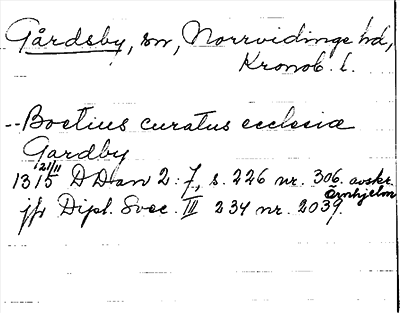 Gårdsby, sn, Norrvidinge hd,
Kronob. l.
-- Boetius curatus ecclesiæ
Gardby
21/11
1315 D Dan 2: 7, s. 226 nr. 306. avskr.
Örnhjelm
jfr Dipl. Svec. III 234 nr. 2039.